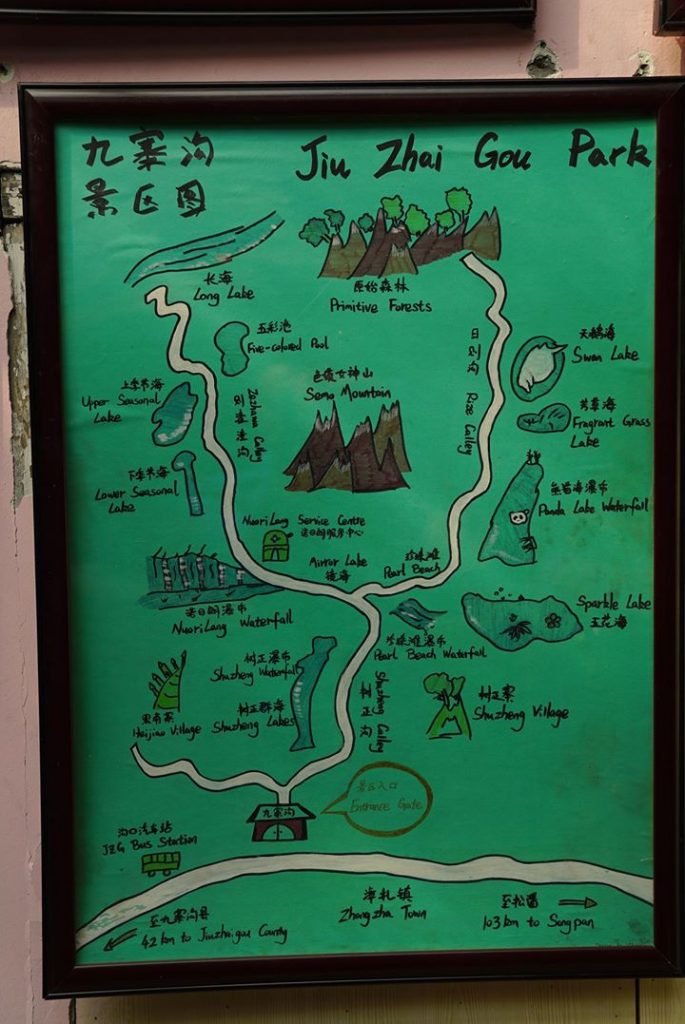 九寨沟 Jiu Zhai Gou Park
景区图
长海
Long Lake
原始森林
Primitive Forests
五彩池
Five-colored Pool
日则沟
Rize Galley
天鹅海
Swan Lake
上季节海
Upper Seasonal
Lake
则查洼沟
Zezhawa Galley
色嫫女神山
Semo Mountain
芳草海
Fragrant Grass
Lake
下季节海
Lower Seasonal
Lake
熊猫海瀑布
Panda Lake Waterfall
NuoriLang Service Centre
诺日朗服务中心
Mirror Lake
镜海
珍珠滩
Pearl Beach
诺日朗瀑布
NuoriLang Waterfall
珍珠滩瀑布
Pearl Beach Waterfall
Sparkle Lake
五花海
树正瀑布
Shuzheng Waterfall
树正群海
Shuzheng Lakes
树正沟
Shuzheng Galley
树正寨
Shuzheng Village
Heijiao Village
景区入口
Entrance Gate
九寨沟
沟口汽车站
JZG Bus Station
至九寨沟县
42 km to Jiuzhaigou County
漳扎镇
Zhangzha Town
至松潘
103 km to Songpan